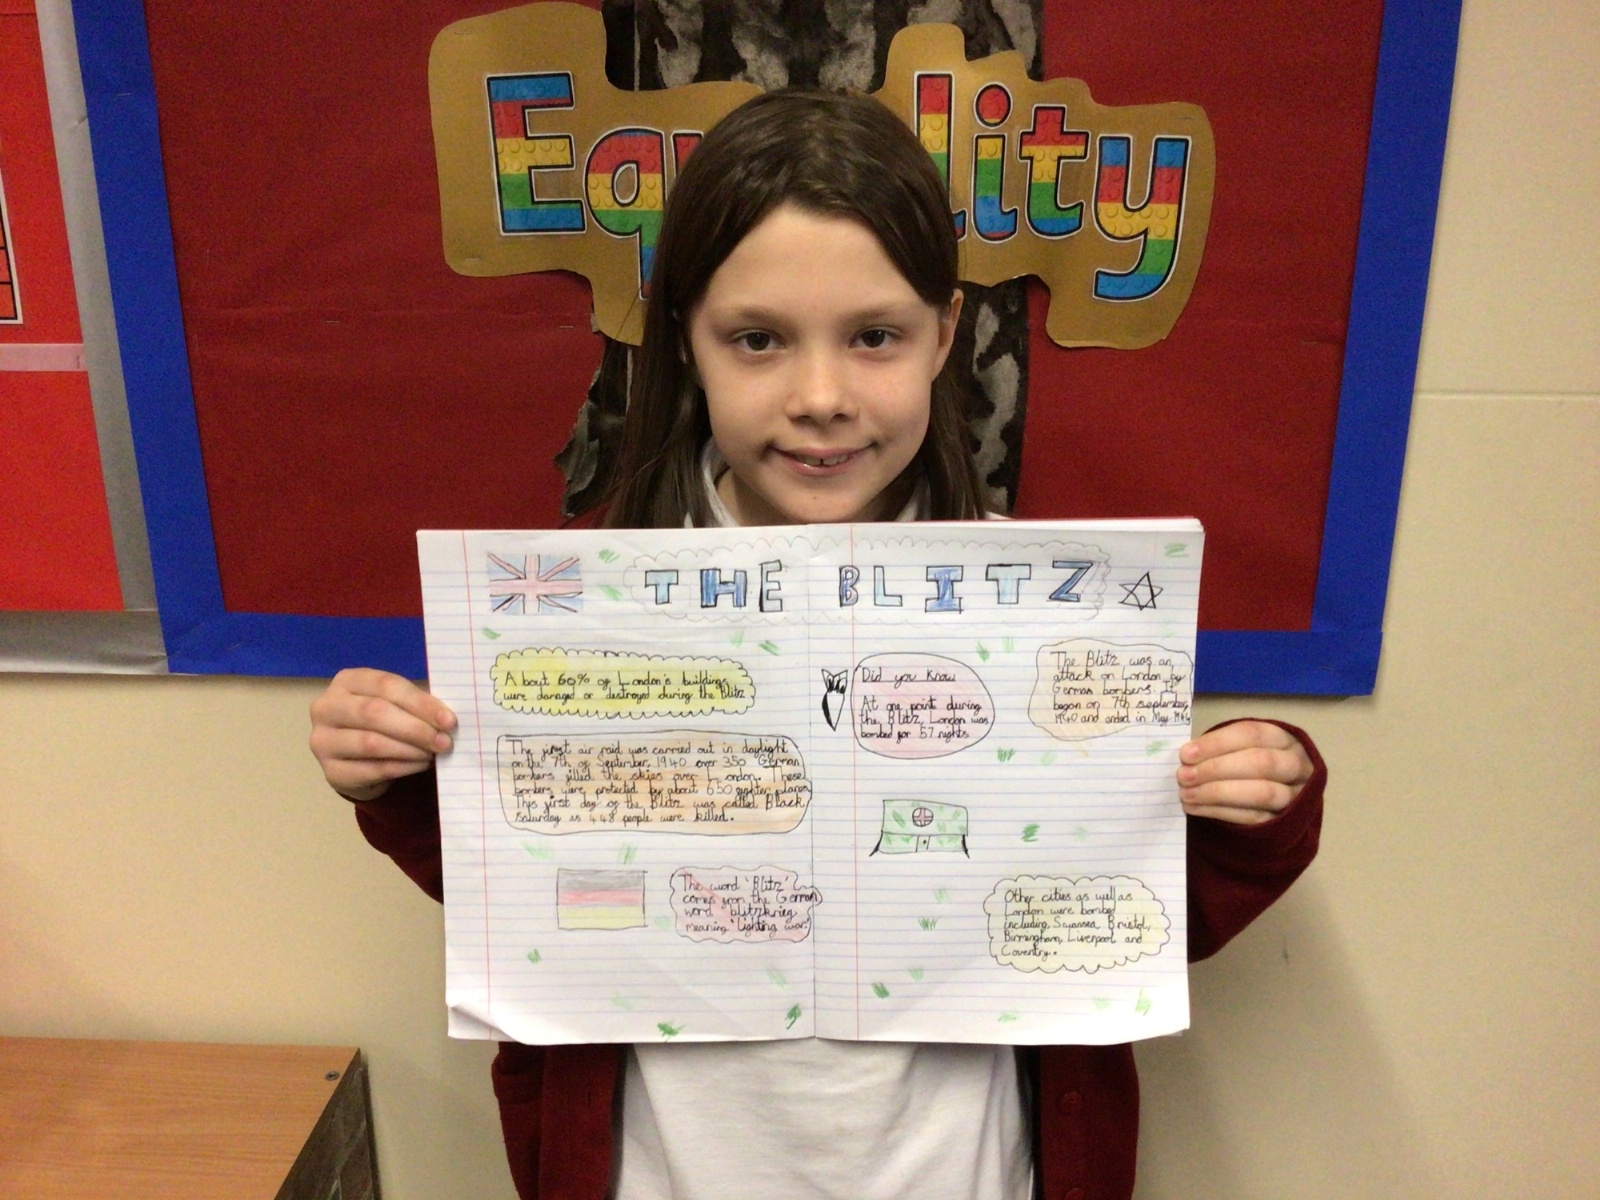 Equality
THE BLITZ
About 60% of London's buildings
were damaged or destroyed during the Blitz
The first air raid was carried out in daylight
on the 7th of September, 1940 over 350 German
bombers filled the skies over London. These
bombers were protected by about 650 fighter planes.
This first day of the Blitz was called Black
saturday as 448 people were killed.
The word 'Blitz'
comes from the German
word blitzkrieg
meaning 'lighting war'
Did you know
At one point during
the Blitz, London was
bombed for 57 nights
The Blitz was an
attack on London by
German bombers. It
began on 7th september,
1940 and ended in May
Other cities as well as
London were bombed
including, Swansea, Bristol,
Birmingham, Liverpool and
Coventry.